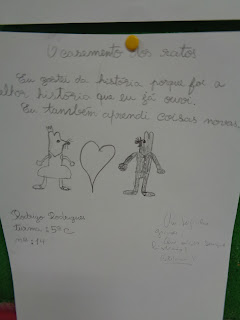 O casamento dos ratos
Eu gostei da história porque foi a
elhor história que eu já ouvi.
Eu também aprendi coisas novas
Rodrigo Rodrigues
Turma: 5º C
nº: 14